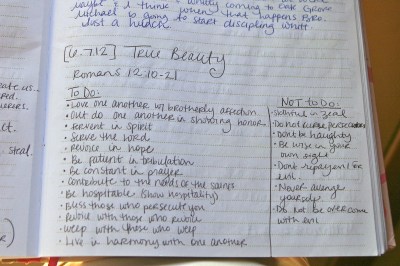 maybe & I think
coming to Oak Grove
Michael is going to start discipling whitt.
when that happens Bro.
Just a hunch
[6.7.12] True Beauty
Romans 12:10-21
To Do:
• Love one another w/ brotherly affection
• Out do one another in showing honor
• fervent in spirit
• Serve the Lord
• Rejoice in hope
• Be patient in tribulation
• Be constant in prayer
• Contribute to the needs of the saints
• Be hospitable (show hospitality)
• Bless those who persecute you
• Rejoice with those who rejoice
• Weep with those who weep
• Live in harmony with one another
NOT to DO:
• Slothful in zeal
• Do not curse persecutors
• Don't be haughty
• Be wise in your
own sight
• Don't repay evil for
evil
• Never avenge
yourself
• Do not be overcome
with evil
ate us.
steal.